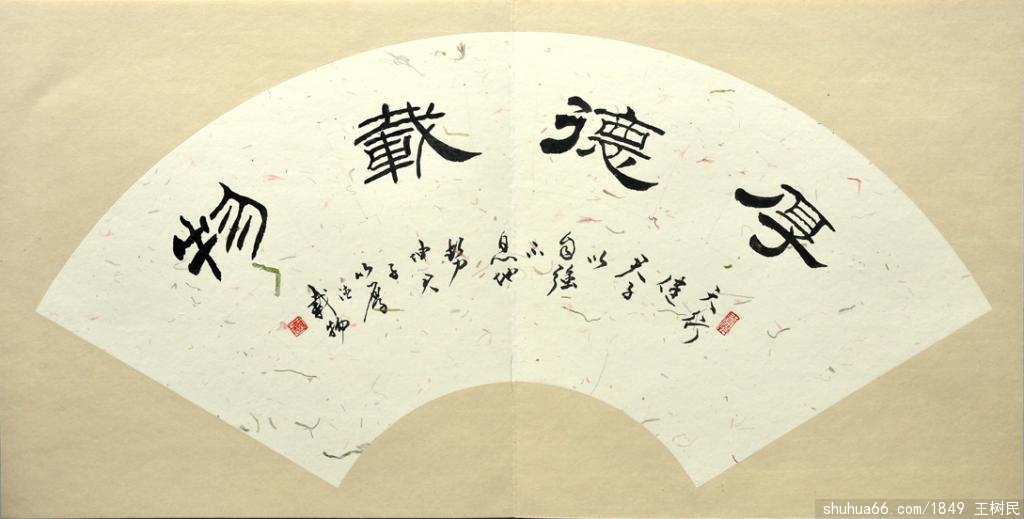 厚德載物
天行
健
君子
以
自強
不
息地
勢
坤君
子
以厚
德
載物
shuhua66.com/1849 王树民